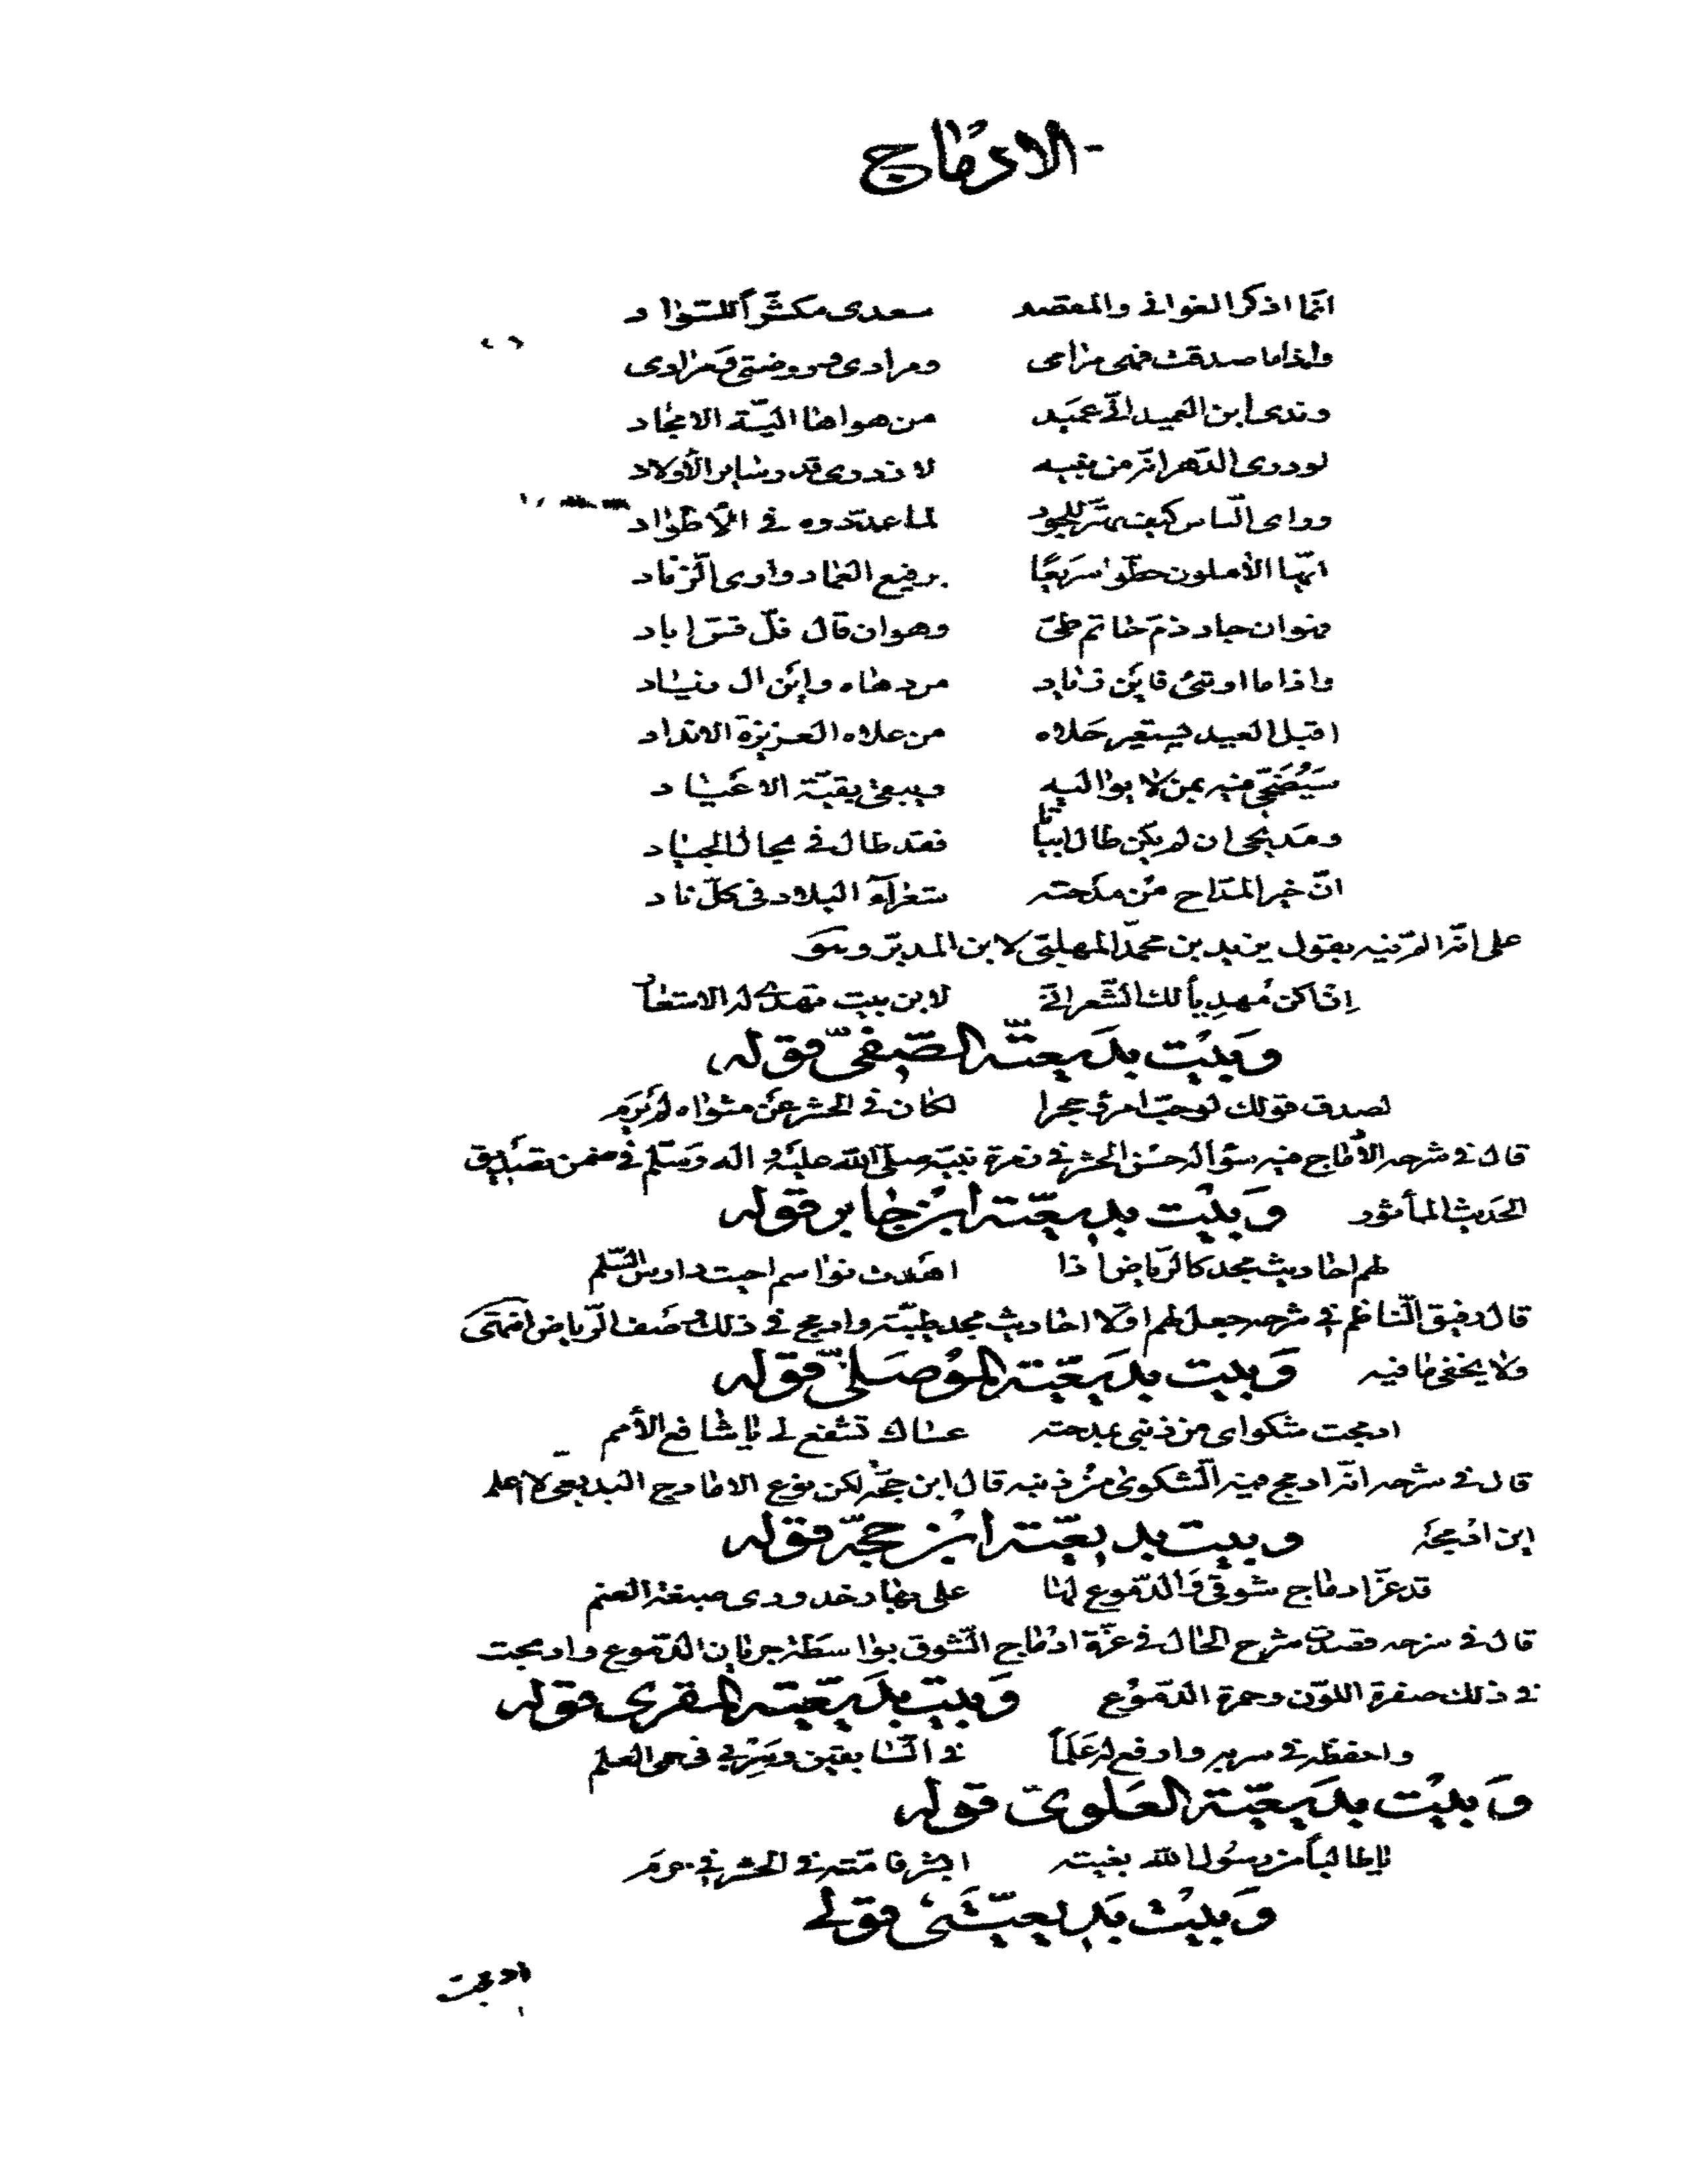 الادماج
انما اذكر الغواني والمقصد سعدى مكثرا للسواد
واذا ما صدقت فهى مرامى ومرادى وروضتى ومرادى
وندى ابن العميد انى عميد من هواها اليّة الامجاد
لو درى الدهر انه من بنيه لازدرى قدر سائر الأولاد
وراى الناس كيف يهتز للجود لما عددوه فى الأطواد
ايّها الآملون حطّوا سريعًا برفيع العماد وارى الزناد
فهو ان جاد ذمّ حاتم طىّ وهو ان قال فلّ قسّ اياد
واذا ما ارتئى فاين زياد من دهاه واين ال زياد
اقبل العيد يستعير حلاه من علاه العزيزة الانداد
سيُضحّى فيه بمن لا يواليه ويبقى بقيّة الاعياد
ومديحى ان لم يكن طال ابياتا فقد طال فى مجال الجياد
انّ خير المدّاح من مدحته شعرآء البلاد فى كلّ ناد
على انّه المّ فيه بقول يزيد بن محمّد المهلبى لابن المدبّر وهو
ان اكن مُهدياً لك الشّعر انّى لابن بيت تهدى له الاشعار
وَبيْت بديعيّته الصّفىّ قوله
لصدق قولك لو حبّ امرؤ حجرا لكان فى الحشر عن مثواه لم يَرِم
قال فى شرحه الادماج فيه سؤاله حسن الحشر فى زمرة نبيّه صلّى الله عليه واله وسلّم فى ضمن تصديق
الحديث المأثور وَبيْت بديعيّته ابن جابر قوله
لهم احاديث مجد كالرّياض اذا اهدت نواسم احيت دارس النّسم
قال رفيق النّاظم فى شرحه جعل لهم اوّلا احاديث مجد طيّبة وادمج فى ذلك وصف الرّياض انتهى
ولا يخفى ما فيه وَبيت بديعيّته الموصلىّ قوله
ادمجت شكواى من ذنبى بمدحته عساك تشفع لى يا شافع الأمم
قال فى شرحه انّه ادمج فيه الشّكوى من ذنبه قال ابن حجّة لكن نوع الادماج البديعى لا اعلم
اين ادمجه وبيت بديعيّته ابن حجّة قوله
قد عزّ ادماج شوقى والدّموع لها على بهار خدودى صبغة العنم
قال فى شرحه قصدت شرح الحال فى عزّة ادماج الشّوق بواسطة جريان الدّموع وادمجت
فى ذلك صفرة اللّون وحمرة الدّموع وَبيت بديعيّته المقرى قوله
واحفظه فى سربه وارفع له علماً فى السّابقين وسربى فى حمى العلم
وَبيْت بديعيّته العلوىّ قوله
يا طالباً من رسول الله بغيته ابشر فامّته فى الحشر فى حرم
وَبيْت بديعيّتى قولى
ادمجت